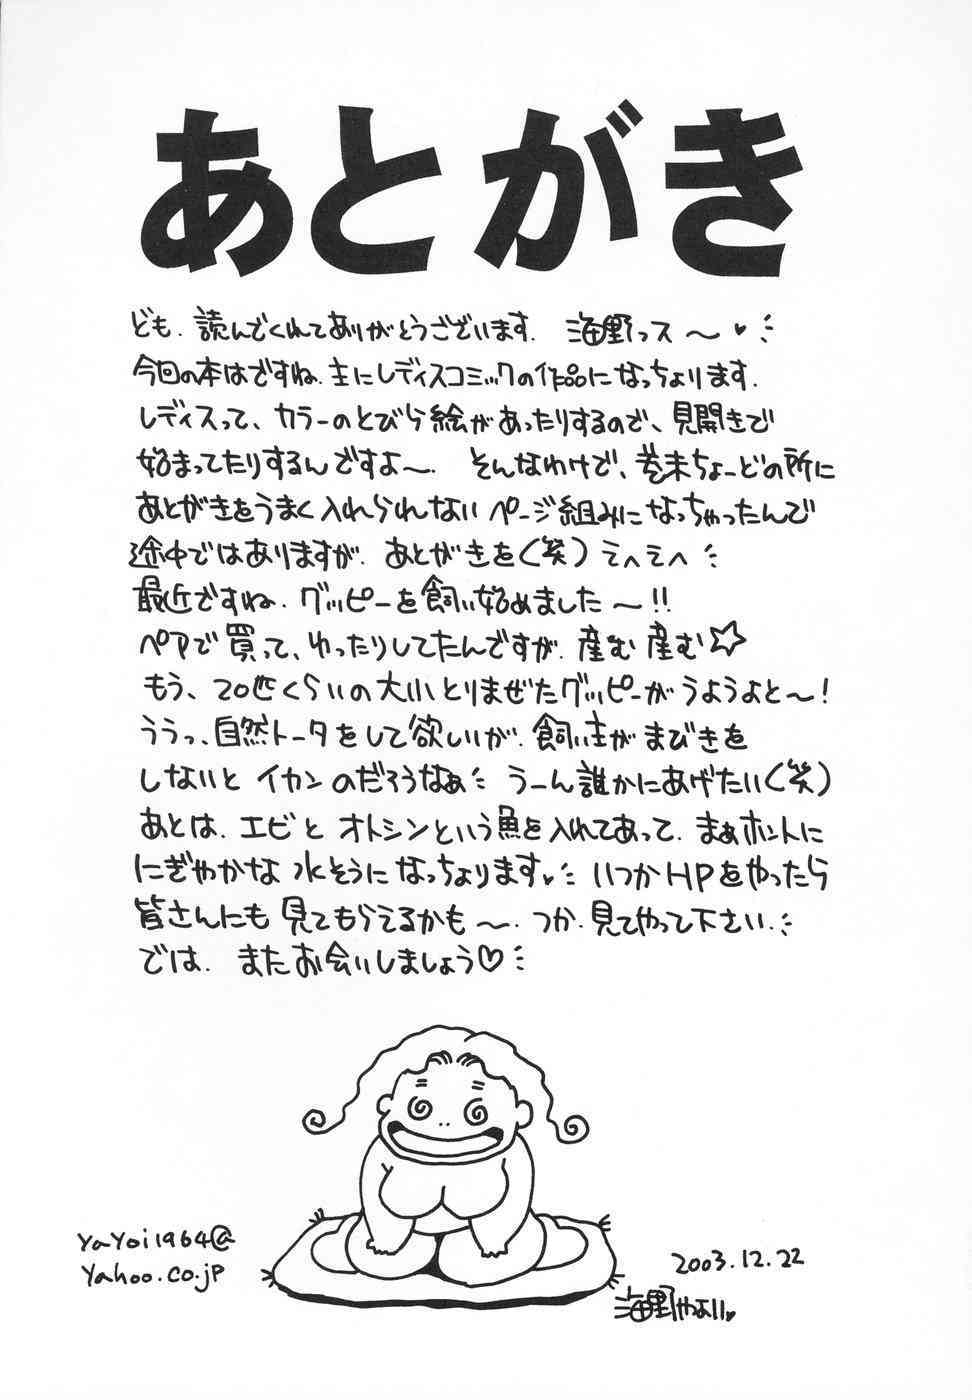 あとがき
ども.読んでくれてありがとうございます. 海野っス〜♥
今回の本はですね.主にレディスコミックの作品になっちょります.
レディスって、カラーのとびら絵があったりするので、見開きで
始まってたりするんですよ〜. そんなわけで、巻末ちょーどの所に
あとがきをうまく入れられないページ組みになっちゃったんで
途中ではありますが.あとがきを(笑)えへえへ
最近ですね.グッピーを飼い始めました〜!!
ペアで買って、ゆったりしてたんですが.産む産む☆
もう、20匹くらいの大小とりまぜたグッピーがうようよと〜!
ううっ、自然トータをして欲しいが.飼い主がまびきを
しないとイカンのだろうなぁ うーん誰かにあげたい(笑)
あとは.エビとオトシンという魚を入れてあって.まぁホントに
にぎやかな水そうになっちょります♥ いつかHPをやったら
皆さんにも見てもらえるかも〜.つか.見てやって下さい.
では.またお会いしましょう♡
YaYoi1964@
Yahoo.co.jp
2003.12.22
海野やよい♥